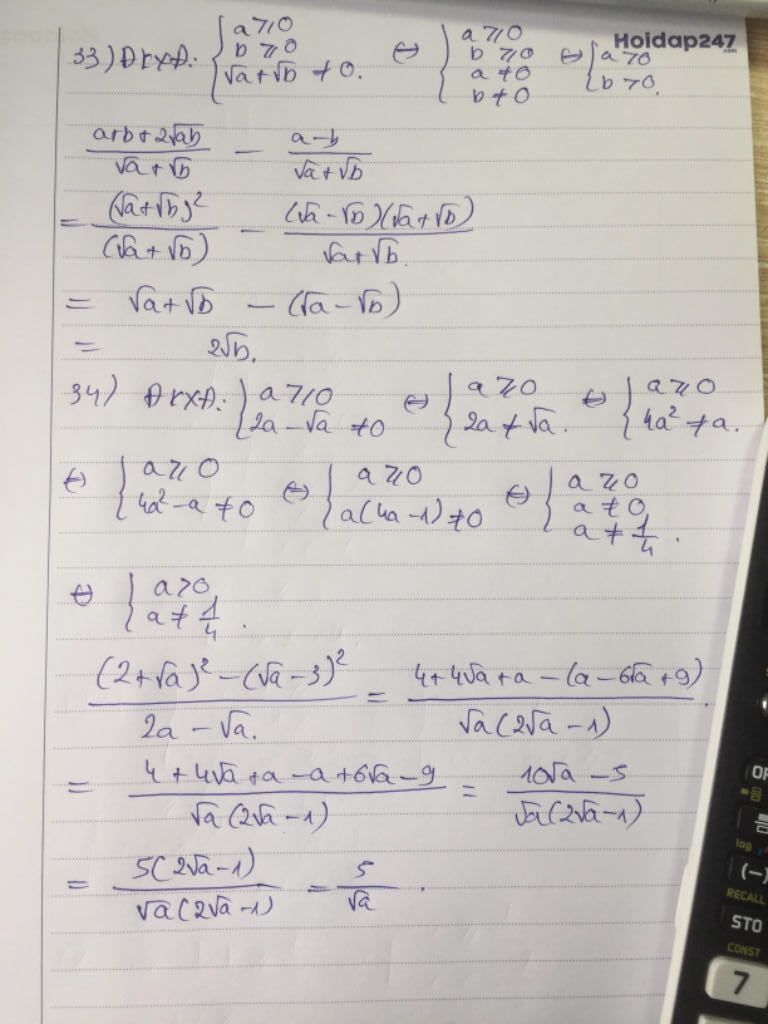 Hoidap247
33) ĐKXĐ: { a ⩾ 0; b ⩾ 0; √a + √b ≠ 0. ⇔ { a ⩾ 0; b ⩾ 0; a ≠ 0; b ≠ 0 ⇔ { a > 0; b > 0.
(a+b+2√ab)/(√a+√b) − (a−b)/(√a+√b)
= (√a+√b)²/(√a+√b) − (√a−√b)(√a+√b)/(√a+√b).
= √a+√b − (√a−√b)
= 2√b.
34) ĐKXĐ: { a ⩾ 0; 2a − √a ≠ 0 ⇔ { a ⩾ 0; 2a ≠ √a. ⇔ { a ⩾ 0; 4a² ≠ a.
⇔ { a ⩾ 0; 4a² − a ≠ 0 ⇔ { a ⩾ 0; a(4a−1) ≠ 0 ⇔ { a ⩾ 0; a ≠ 0; a ≠ 1/4.
⇔ { a > 0; a ≠ 1/4.
((2+√a)² − (√a−3)²)/(2a − √a.) = (4+4√a+a − (a−6√a+9))/(√a(2√a−1)).
= (4+4√a+a−a+6√a−9)/(√a(2√a−1)) = (10√a−5)/(√a(2√a−1))
= 5(2√a−1)/(√a(2√a−1)) = 5/√a.
log
(−)
RECALL
STO
CONST
7